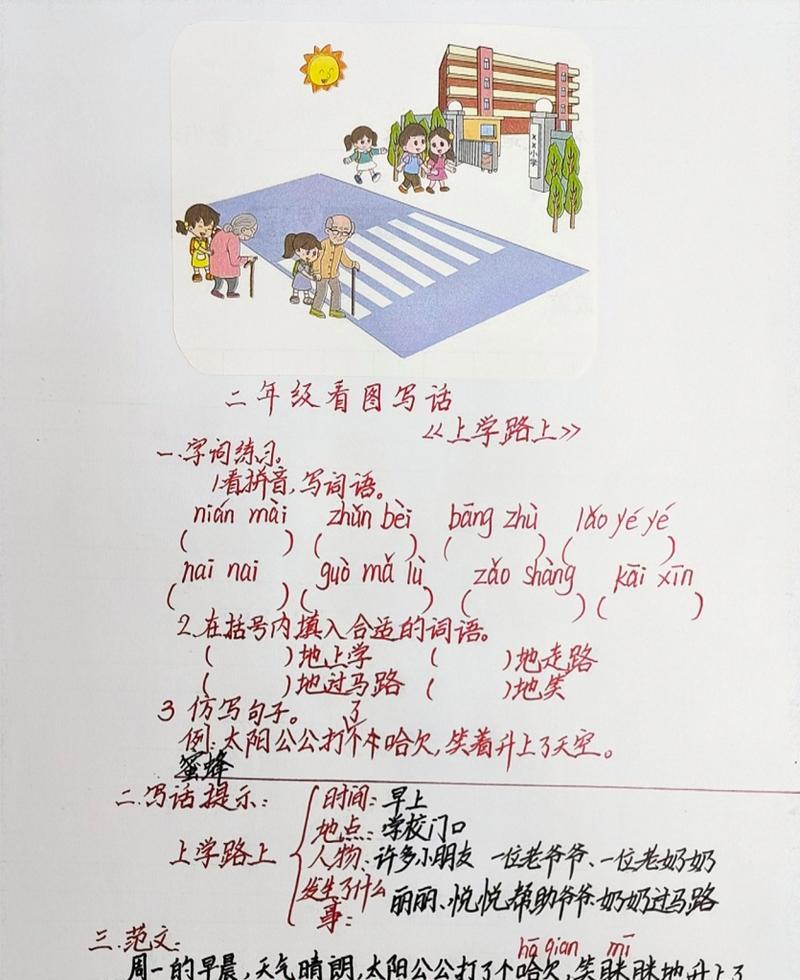 ××小学
二年级看图写话
《上学路上》
一.字词练习。
1看拼音,写词语。
nián mài  zhǔn bèi  bāng zhù  lǎo yé yé
(   )  (   )  (   )  (   )
nai nai  guò mǎ lù  zǎo shàng  kāi xīn
(   )  (   )  (   )  (   )
2.在括号内填入合适的词语。
(   )地上学  (   )地走路
(   )地过马路  (   )地笑
3 仿写句子。
例:太阳公公打了个哈欠,笑着升上了天空。
蜜蜂
二.写话提示:
上学路上
时间:早上
地点:学校门口
人物:许多小朋友 一位老爷爷、一位老奶奶
发生了什么事:丽丽、悦悦帮助爷爷奶奶过马路
三.范文:
hā qian  mī
周一的早晨,天气晴朗,太阳公公打了个哈欠,笑眯眯地升上了